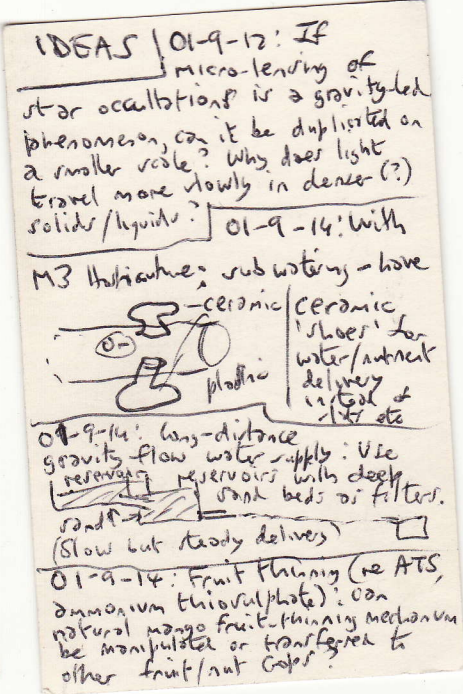 IDEAS | 01-9-12: If
micro-lensing of
star occultations is a gravity-led
phenomenon, can it be duplicated on
a smaller scale? Why does light
travel more slowly in denser (?)
solids/liquids?
01-9-14: With
M3 Horticulture: sub watering - have
ceramic
plastic
ceramic
'shoes' for
water/nutrient
delivery
instead of
slits etc
01-9-14: Long-distance
gravity flow water supply: Use
reservoirs with deep
sand beds as filters.
reservoir
sand
(Slow but steady delivery)
01-9-14: Fruit thinning (re ATS,
ammonium thiosulphate): can
natural mango fruit-thinning mechanism
be manipulated or transferred to
other fruit/nut crops?